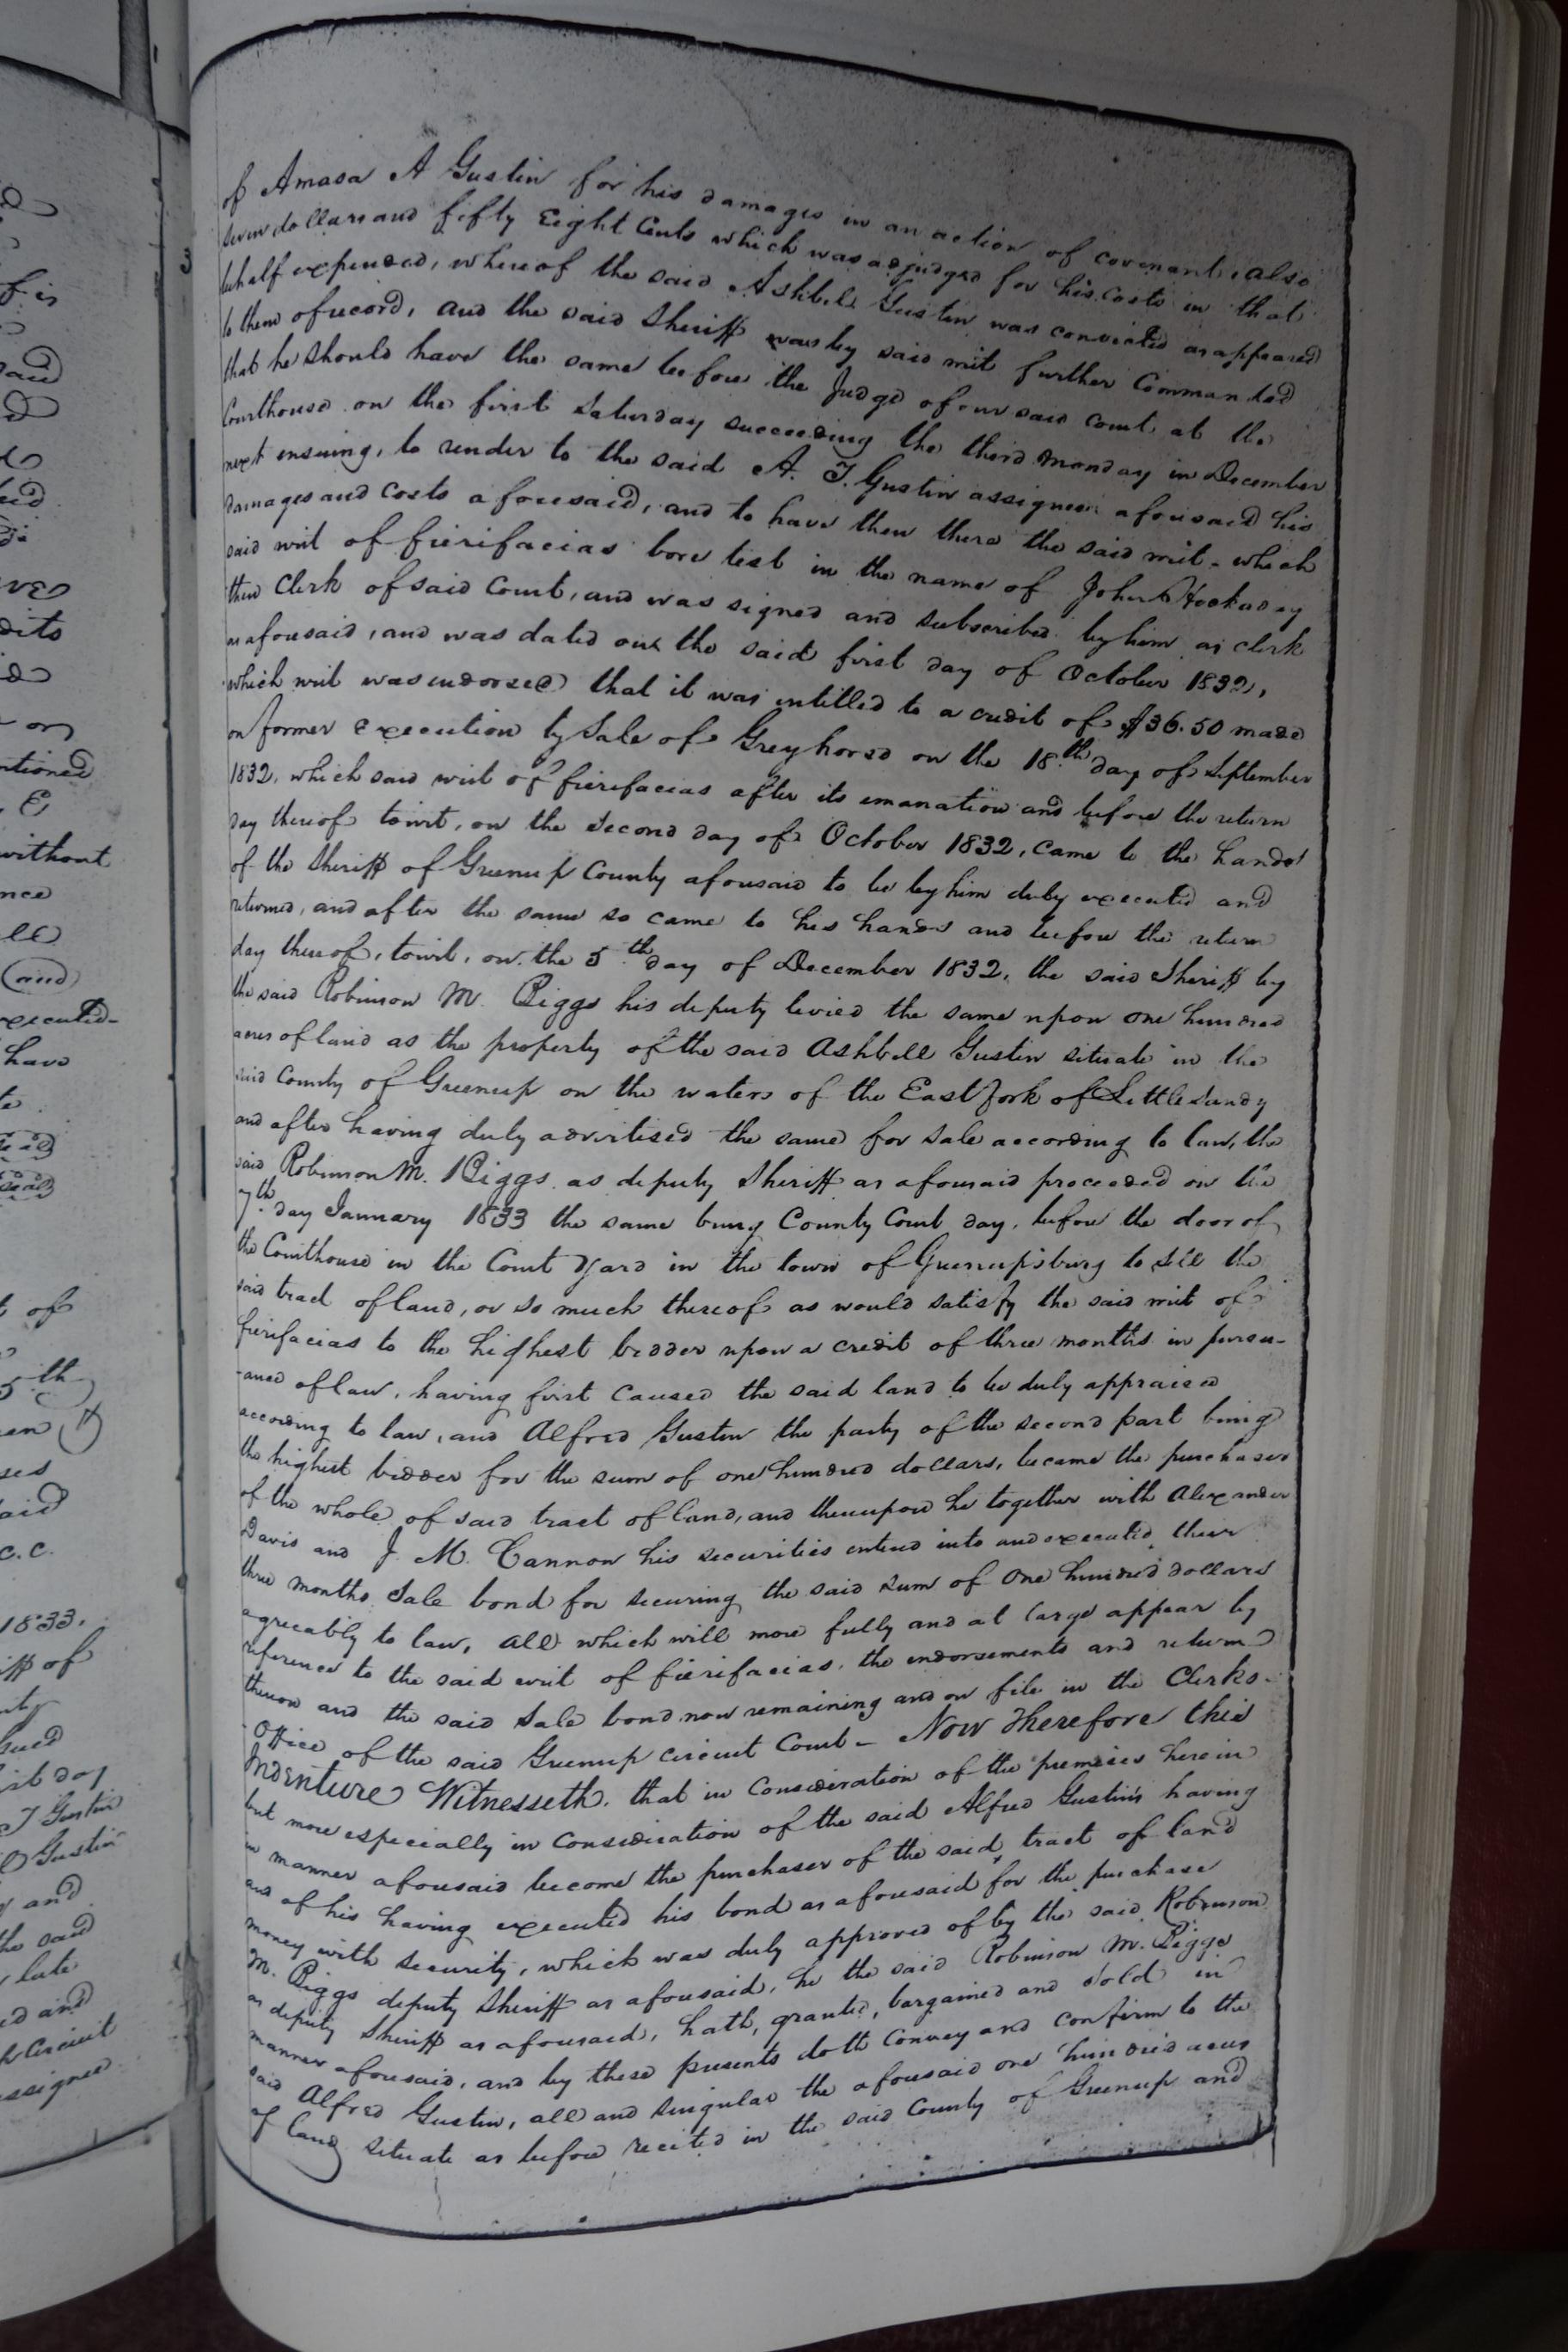 of Amasa A Gustin for his damages in an action of covenant, also
seven dollars and fifty Eight Cents which was adjudged for his Costs in that
behalf expended, whereof the said Ashbell Gustin was convicted as appeared
to them of record, and the said Sheriff was by said writ further Commanded
that he should have the same before the Judge of our said court at the
Courthouse on the first Saturday succeeding the third Monday in December
next ensuing, to render to the said A. T. Gustin assignee aforesaid his
damages and costs aforesaid, and to have then there the said writ - which
said writ of fierifacias bore test in the name of John Hockaday
then Clerk of said Court, and was signed and subscribed by him as clerk
as aforesaid, and was dated on the said first day of October 1832,
which writ was indorsed that it was intitled to a credit of $36.50 made
on former execution by Sale of Grey horse on the 18th day of September
1832, which said writ of fierifacias after its emanation and before the return
day thereof towit, on the Second day of October 1832, came to the hands
of the Sheriff of Greenup County aforesaid to be by him duly executed and
returned, and after the same so came to his hands and before the return
day thereof, towit, on the 5th day of December 1832, the said Sheriff by
the said Robinson M. Biggs his deputy levied the same upon one hundred
acres of land as the property of the said Ashbell Gustin situate in the
said County of Greenup on the waters of the East fork of Little Sandy
and after having duly advertised the same for sale according to law, the
said Robinson M. Biggs as deputy Sheriff as aforesaid proceeded on the
7th day January 1833 the same being County Court day, before the door of
the Courthouse in the Court Yard in the town of Greenupsburg to sell the
said tract of land, or so much thereof as would satisfy the said writ of
fierifacias to the highest bidder upon a credit of three months in pursu-
-ance of law, having first caused the said land to be duly appraised
according to law, and Alfred Gustin the party of the second part being
the highest bidder for the sum of one hundred dollars, became the purchaser
of the whole of said tract of land, and thereupon he together with Alexander
Davis and J. M. Cannon his securities entered into and executed their
three months Sale bond for securing the said sum of One hundred dollars
agreeably to law, all which will more fully and at large appear by
reference to the said writ of fierifacias, the endorsements and return
thereon and the said Sale bond now remaining and on file in the Clerks-
-Office of the said Greenup circuit Court - Now Therefore this
Indenture Witnesseth, that in Consideration of the premises herein
but more especially in Consideration of the said Alfred Gustin's having
in manner aforesaid become the purchaser of the said tract of land
and of his having executed his bond as aforesaid for the purchase
money with security, which was duly approved of by the said Robinson
M. Biggs deputy Sheriff as aforesaid, he the said Robinson M. Biggs
as deputy Sheriff as aforesaid, hath, granted, bargained and sold in
manner aforesaid, and by these presents doth Convey and confirm to the
said Alfred Gustin, all and singular the aforesaid one hundred acres
of land situate as before recited in the said County of Greenup and